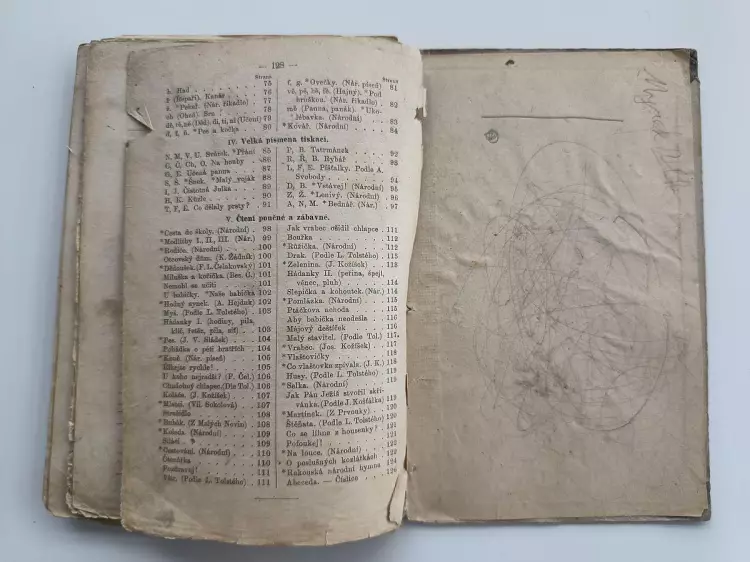 — 128 —
Strana
h. Had 75
k (Kopáři). Kanár 76
* Pekař. (Nár. říkadlo) 77
ch (Ohco). Sra 78
dě, tě, ně (Děd) di, ti, ni (Učení) 79
d, ť, ň. *Pes a kočka 80
IV. Velká písmena tiskací.
N, M, V, U. Svátek. *Přání 85
C, Č, Ch, O. Na houby 86
G, E. Učená panna 87
S, Š. *Šnek. *Malý voják 88
I, J. Čistotná Julka 89
H, K. Kůzle 90
T, F, E. Co dělaly prsty? 91
Strana
f, g. *Ovečky. (Nár. píseň) 81
vě, pě, bě, fě. (Hajný.) *Pod
hroškou. (Nár. říkadlo) 82
mě (Panna, panák). *Uko-
lébavka. (Národní) 83
*Kovář. (Národní) 84
P, B. Tatrmánek 92
R, Ř, B. Rybář 93
L, F, E. Píšťalky. Podle A.
Svobody 94
D, B. *Vstávej! (Národní) 95
Z, Ž. *Lenivý. (Národní) 96
A, N, M. *Bednář. (Nár.) 97
V. Čtení poučné a zábavné.
*Cesta do školy. (Národní) 98
*Modlitby I., II., III. (Nár.) 99
*Rodiče. (Národní) 100
Otcovský dům. (K. Žádník) 100
*Dědoušek. (F. L. Čelakovský) 101
Miluška a kočička. (Bes. Č.) 101
Nemohl se učiti 101
U babičky. *Naše babička 102
*Hodný synek. (A. Hejduk) 102
Myš. (Podle L. Tolstého) 103
Hádanky I. (hodiny, pila,
klíč, řetěz, pila, síť) 103
*Pes. (J. V. Sládek) 104
Pohádka o pěti bratřích 104
*Kouř. (Nár. píseň) 105
Říkejte rychle! 105
U koho nejradši? (F. Čel.) 106
Chudobný chlapec. (Dle Tol.) 106
Koleda. (J. Kožíšek) 107
*Mlsní. (Vil. Sokolová) 107
Strašidla 108
*Rubák. (Z Malých Novin) 108
*Koleda. (Národní) 109
Sáňkl 109
*Cestování. (Národní) 110
Čtenářka 110
Pozdravuj! 111
Vůz. (Podle L. Tolstého) 111
Jak vrabec ošidil chlapce 111
Bouřka 112
*Růžička. (Národní) 112
Drak. (Podle L. Tolstého) 113
*Zelenina. (J. Kožíšek) 113
Hádanky II. (peřina, špejl,
věnec, pluh) 114
Slepička a kohoutek. (Nár.) 114
*Pomlázka. (Národní) 115
Ptáčkova nehoda 115
Aby babička neodešla 116
Májový deštíček 116
Malý stavitel. (Podle Tol.) 117
*Vrabec. (Jos. Kožíšek) 117
*Vlaštovičky 118
*Co vlaštovka zpívala. (J. K.) 118
Husy. (Podle L. Tolstého) 118
*Salka. (Národní) 119
Jak Pán Ježíš stvořil skři-
vánka. (Podle J. Košťálka) 119
*Martínek. (Z Prvouky) 120
Štěňata. (Podle L. Tolstého) 120
Co se líhne z housenky? 121
Pofoukej! 121
*Na louce. (Národní) 122
O poslušných kozlátkách 122
*Rakouská národní hymna 124
Abeceda. — Číslice 126